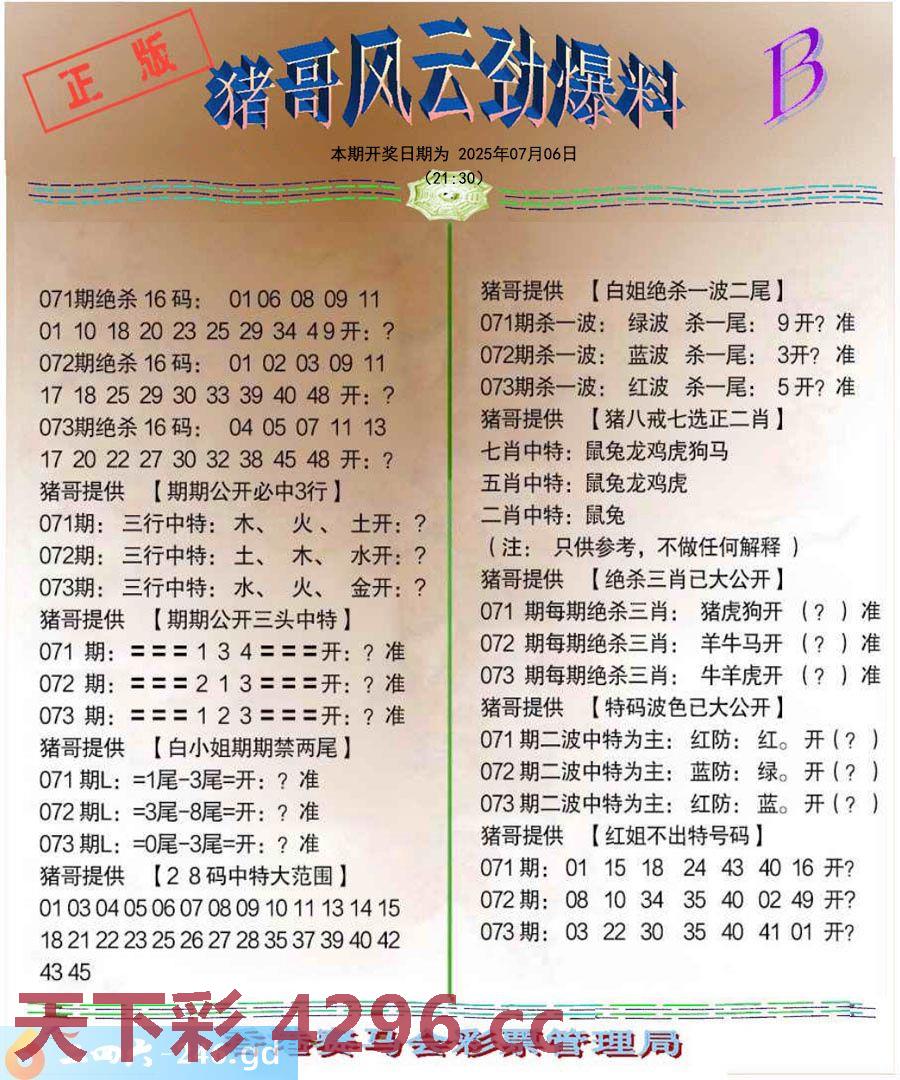 正版
猪哥风云劲爆料
B
本期开奖日期为 2025年07月06日
(21:30)
071期绝杀16码： 01 06 08 09 11
01 10 18 20 23 25 29 34 49 开：?
072期绝杀16码： 01 02 03 09 11
17 18 25 29 30 33 39 40 48 开：?
073期绝杀16码： 04 05 07 11 13
17 20 22 27 30 32 38 45 48 开：?
猪哥提供 【期期公开必中3行】
071期： 三行中特： 木、 火、 土开：?
072期： 三行中特： 土、 木、 水开：?
073期： 三行中特： 水、 火、 金开：?
猪哥提供 【期期公开三头中特】
071 期：===134===开：? 准
072 期：===213===开：? 准
073 期：===123===开：? 准
猪哥提供 【白小姐期期禁两尾】
071期L：=1尾-3尾=开：? 准
072期L：=3尾-8尾=开：? 准
073期L：=0尾-3尾=开：? 准
猪哥提供 【28码中特大范围】
01 03 04 05 06 07 08 09 10 11 13 14 15
18 21 22 23 25 26 27 28 35 37 39 40 42
43 45
猪哥提供 【白姐绝杀一波二尾】
071期杀一波： 绿波 杀一尾： 9开? 准
072期杀一波： 蓝波 杀一尾： 3开? 准
073期杀一波： 红波 杀一尾： 5开? 准
猪哥提供 【猪八戒七选正二肖】
七肖中特：鼠兔龙鸡虎狗马
五肖中特：鼠兔龙鸡虎
二肖中特：鼠兔
（注： 只供参考，不做任何解释）
猪哥提供 【绝杀三肖已大公开】
071 期每期绝杀三肖： 猪虎狗开 （?）准
072 期每期绝杀三肖： 羊牛马开 （?）准
073 期每期绝杀三肖： 牛羊虎开 （?）准
猪哥提供 【特码波色已大公开】
071期二波中特为主：红防：红。开(?)
072期二波中特为主：蓝防：绿。开(?)
073期二波中特为主：红防：蓝。开(?)
猪哥提供 【红姐不出特号码】
071期：01 15 18 24 43 40 16 开?
072期：08 10 34 35 40 02 49 开?
073期：03 22 30 35 40 41 01 开?
天下彩 4296.cc
马会彩票管理局